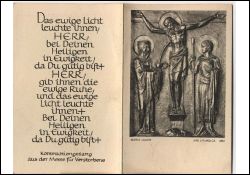 Das ewige Licht
leuchte ihnen,
HERR,
bei Deinen
Heiligen
in Ewigkeit,
da Du gütig bist+
HERR,
gib ihnen die
ewige Ruhe,
und das ewige
Licht leuchte
ihnen+
bei Deinen
Heiligen
in Ewigkeit,
da Du gütig bist+
Kommuniongesang
aus der Messe für Verstorbene